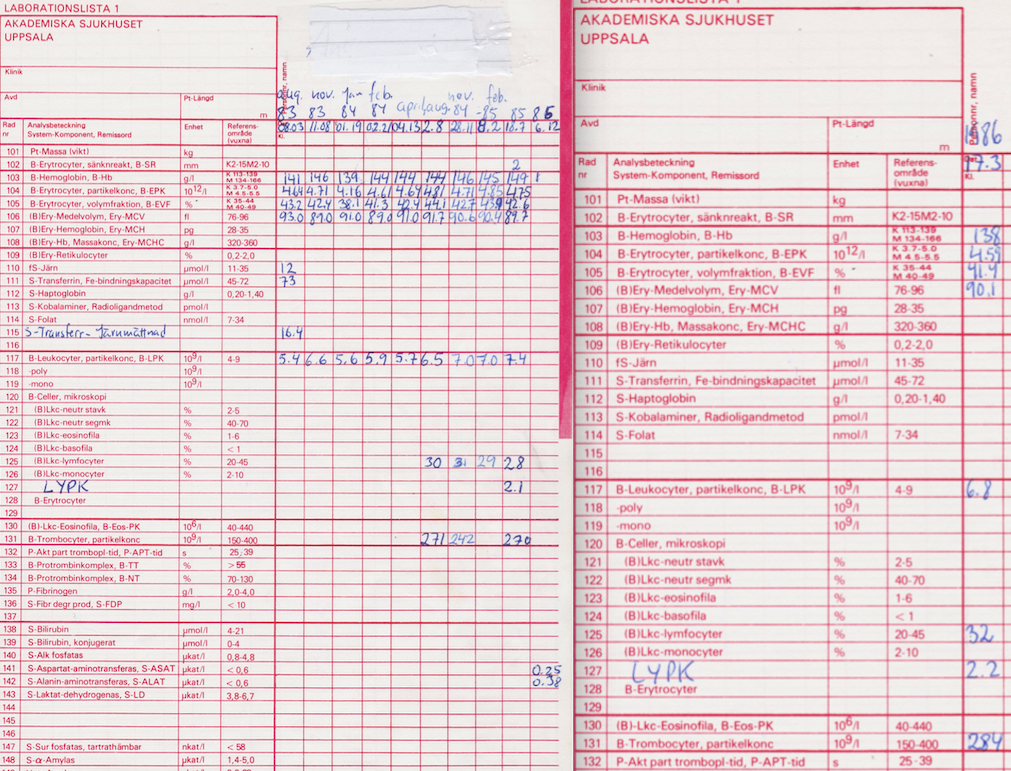 LABORATIONSLISTA 1
AKADEMISKA SJUKHUSET
UPPSALA
Klinik
Avd
Pt-Längd
m
aug. nov. jan feb. april, aug. nov. feb.
83 83 84 84 84 -85 85 86
Rad nr Analysbeteckning System-Komponent, Remissord Enhet Referens-område (vuxna) Kl.
101 Pt-Massa (vikt) kg
102 B-Erytrocyter, sänknreakt, B-SR mm K2-15M2-10 2
103 B-Hemoglobin, B-Hb g/l K 113-139 M 134-166 141 146 139 144 144 144 146 145 149
104 B-Erytrocyter, partikelkonc, B-EPK 10^12/l K 3.7-5.0 M 4.5-5.5 4.64 4.71 4.16 4.61 4.64 4.81 4.71 4.85 4.75
105 B-Erytrocyter, volymfraktion, B-EVF % K 35-44 M 40-49 43.2 41.9 38.1 41.3 42.4 44.1 42.7 43.9 42.6
106 (B)Ery-Medelvolym, Ery-MCV fl 76-96 93.0 89.0 91.0 89.0 91.0 91.7 90.6 90.4 89.7
107 (B)Ery-Hemoglobin, Ery-MCH pg 28-35
108 (B)Ery-Hb, Massakonc, Ery-MCHC g/l 320-360
109 (B)Ery-Retikulocyter % 0,2-2,0
110 fS-Järn µmol/l 11-35 12
111 S-Transferrin, Fe-bindningskapacitet µmol/l 45-72 73
112 S-Haptoglobin g/l 0,20-1,40
113 S-Kobalaminer, Radioligandmetod pmol/l
114 S-Folat nmol/l 7-34
115 S-Transferr- Järnmättnad 16.4
116
117 B-Leukocyter, partikelkonc, B-LPK 10^9/l 4-9 5.4 6.6 5.6 5.9 5.7 6.5 7.0 7.0 7.4
118 -poly 10^9/l
119 -mono 10^9/l
120 B-Celler, mikroskopi
121 (B)Lkc-neutr stavk % 2-5
122 (B)Lkc-neutr segmk % 40-70
123 (B)Lkc-eosinofila % 1-6
124 (B)Lkc-basofila % < 1
125 (B)Lkc-lymfocyter % 20-45 30 31 29 28
126 (B)Lkc-monocyter % 2-10
127 LYPK 2.1
128 B-Erytrocyter
129
130 (B)-Lkc-Eosinofila, B-Eos-PK 10^6/l 40-440
131 B-Trombocyter, partikelkonc 10^9/l 150-400 271 242 270
132 P-Akt part trombopl-tid, P-APT-tid s 25-39
133 B-Protrombinkomplex, B-TT % > 55
134 B-Protrombinkomplex, B-NT % 70-130
135 P-Fibrinogen g/l 2,0-4,0
136 S-Fibr degr prod, S-FDP mg/l < 10
137
138 S-Bilirubin µmol/l 4-21
139 S-Bilirubin, konjugerat µmol/l 0-4
140 S-Alk fosfatas µkat/l 0,8-4,8
141 S-Aspartat-aminotransferas, S-ASAT µkat/l < 0,6 0.25
142 S-Alanin-aminotransferas, S-ALAT µkat/l < 0,6 0.38
143 S-Laktat-dehydrogenas, S-LD µkat/l 3,8-6,7
144
145
146
147 S-Sur fosfatas, tartrathämbar nkat/l < 58
148 S-α-Amylas µkat/l 1,4-5,0
LABORATIONSLISTA 1
AKADEMISKA SJUKHUSET
UPPSALA
Klinik
Avd
Pt-Längd
m
1986
Rad nr Analysbeteckning System-Komponent, Remissord Enhet Referens-område (vuxna) 17.3 Kl.
101 Pt-Massa (vikt) kg
102 B-Erytrocyter, sänknreakt, B-SR mm K2-15M2-10
103 B-Hemoglobin, B-Hb g/l K 113-139 M 134-166 138
104 B-Erytrocyter, partikelkonc, B-EPK 10^12/l K 3.7-5.0 M 4.5-5.5 4.59
105 B-Erytrocyter, volymfraktion, B-EVF % K 35-44 M 40-49 41.4
106 (B)Ery-Medelvolym, Ery-MCV fl 76-96 90.1
107 (B)Ery-Hemoglobin, Ery-MCH pg 28-35
108 (B)Ery-Hb, Massakonc, Ery-MCHC g/l 320-360
109 (B)Ery-Retikulocyter % 0,2-2,0
110 fS-Järn µmol/l 11-35
111 S-Transferrin, Fe-bindningskapacitet µmol/l 45-72
112 S-Haptoglobin g/l 0,20-1,40
113 S-Kobalaminer, Radioligandmetod pmol/l
114 S-Folat nmol/l 7-34
115
116
117 B-Leukocyter, partikelkonc, B-LPK 10^9/l 4-9 6.8
118 -poly 10^9/l
119 -mono 10^9/l
120 B-Celler, mikroskopi
121 (B)Lkc-neutr stavk % 2-5
122 (B)Lkc-neutr segmk % 40-70
123 (B)Lkc-eosinofila % 1-6
124 (B)Lkc-basofila % < 1
125 (B)Lkc-lymfocyter % 20-45 32
126 (B)Lkc-monocyter % 2-10
127 LYPK 2.2
128 B-Erytrocyter
129
130 (B)-Lkc-Eosinofila, B-Eos-PK 10^6/l 40-440
131 B-Trombocyter, partikelkonc 10^9/l 150-400 284
132 P-Akt part trombopl-tid, P-APT-tid s 25-39